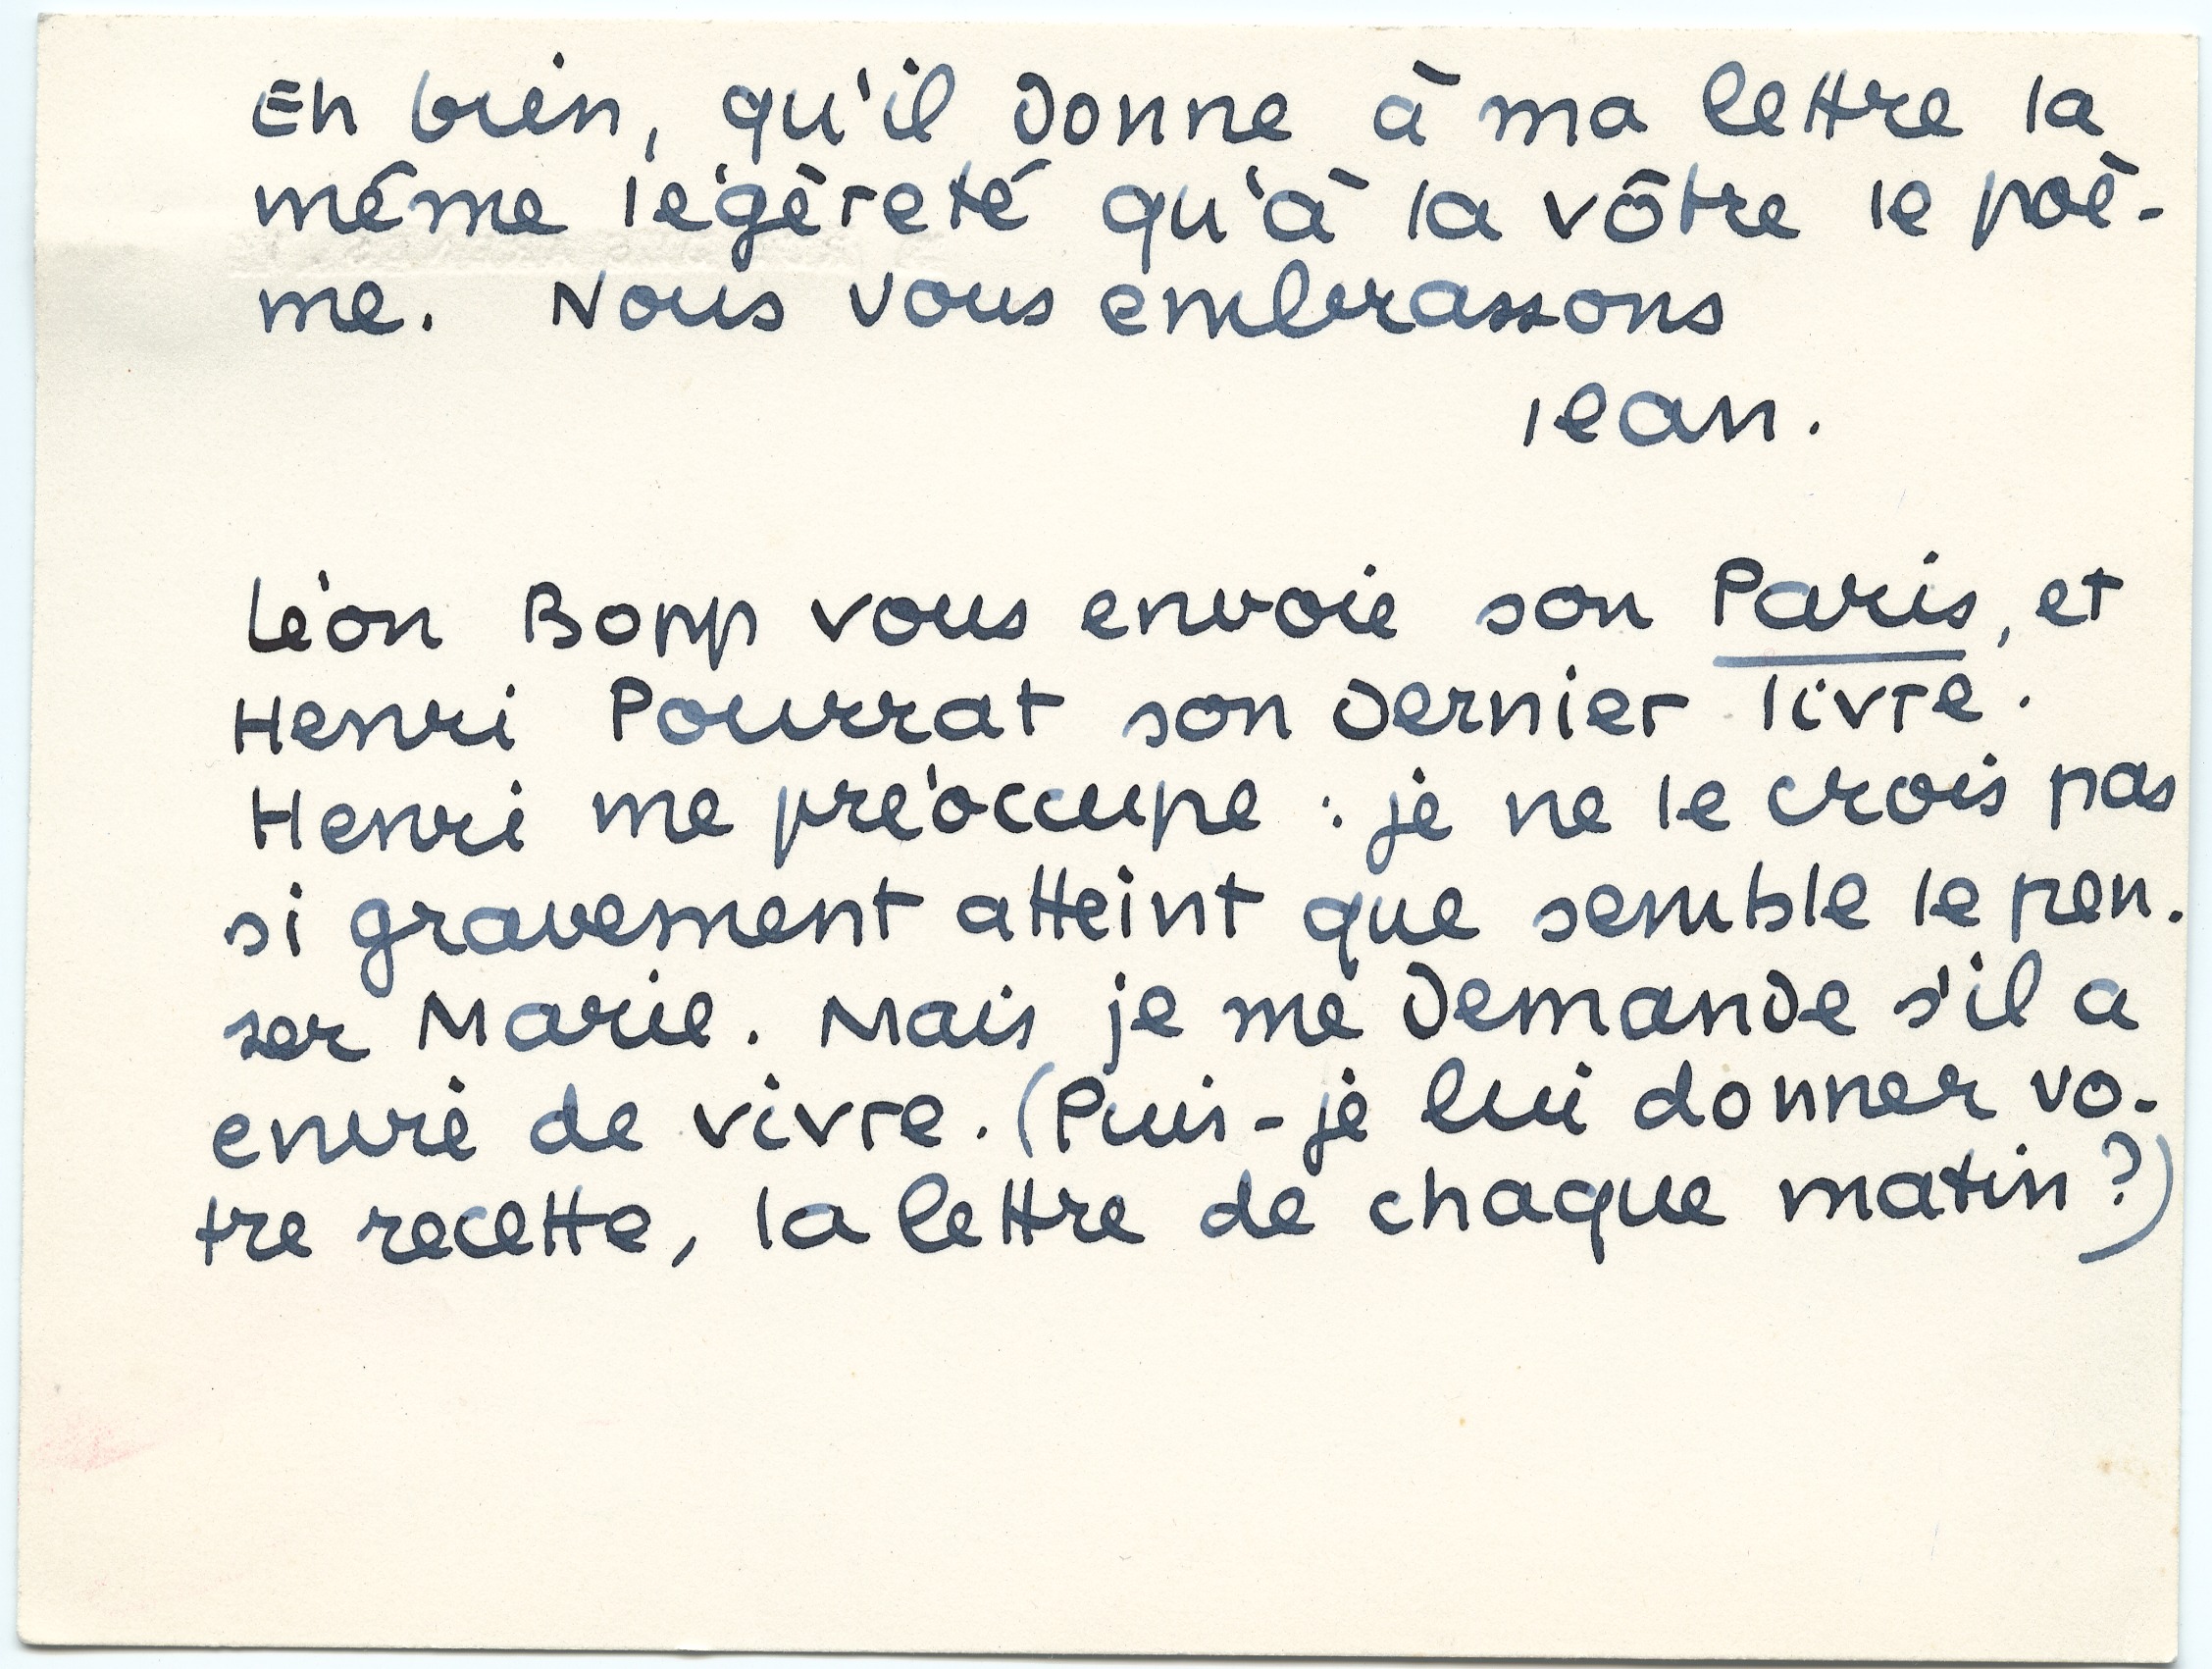 Eh bien, qu'il donne à ma lettre la
même légèreté qu'à la vôtre le poè-
me. Nous vous embrassons
Jean.
Léon Bopp vous envoie son Paris, et
Henri Pourrat son dernier livre.
Henri me préoccupe : je ne le crois pas
si gravement atteint que semble le pen-
ser Marie. Mais je me demande s'il a
envie de vivre. (Puis-je lui donner vo-
tre recette, la lettre de chaque matin ?)